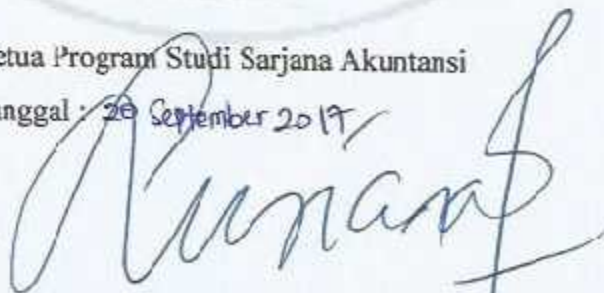 etua Program Studi Sarjana Akuntansi
nggal : 20 September 2017